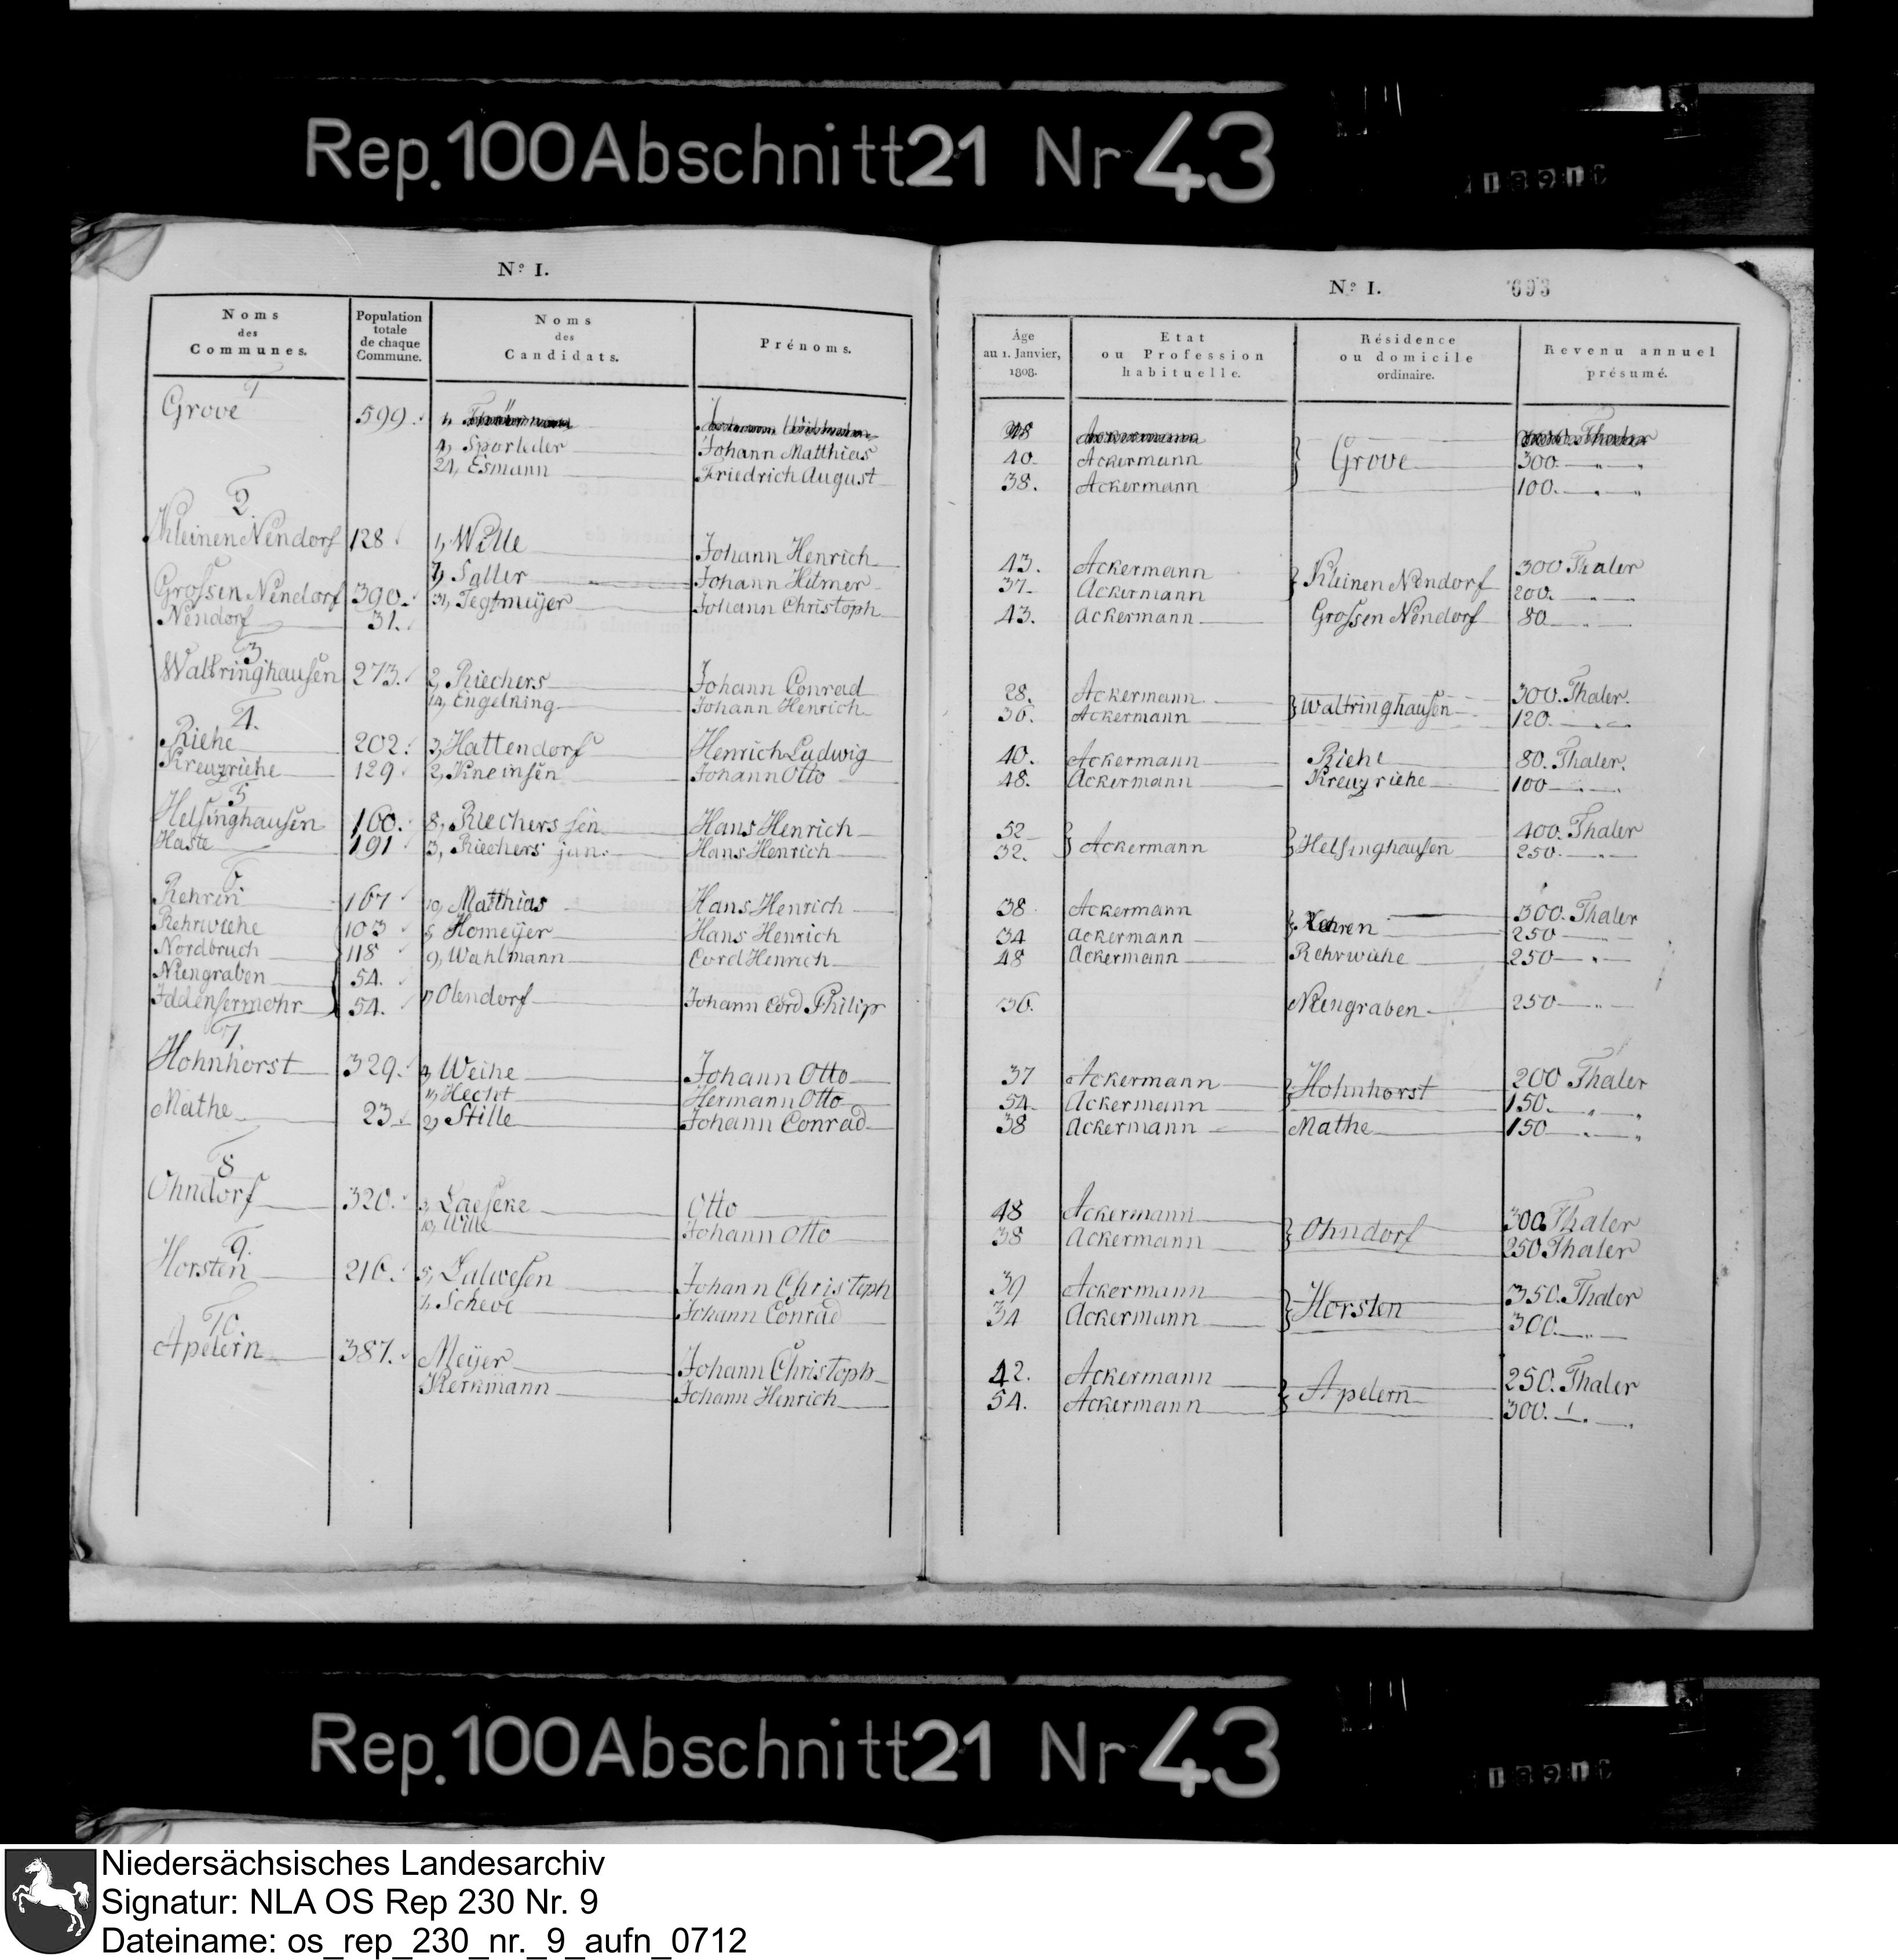 Rep. 100 Abschnitt 21 Nr 43
Nº I.
Noms des Communes.
Population totale de chaque Commune.
Noms des Candidats.
Prénoms.
1
Grove 599.
4, Sporleder Johann Matthias
24, Esmann Friedrich August
2.
Kleinen Nendorf 128 1, Wille Johann Henrich
7, Salter Johann Hitmer
Grossen Nendorf 390. 31, Tegtmeÿer Johann Christoph
Nendorf 31.
3
Waltringhausen 273. 2, Riechers Johann Conrad
14, Engelking Johann Henrich
4.
Riehe 202. 3, Hattendorf Henrich Ludwig
Kreuzriehe 129 2, Kneinsen Johann Otto
5
Helsinghausen 160. 8, Riechers sen. Hans Henrich
Haste 191 3, Riechers jun. Hans Henrich
6
Rehren 167 10, Matthias Hans Henrich
Rehrwiehe 103 5, Homeÿer Hans Henrich
Nordbruch 118 9, Wahlmann Cord Henrich
Niengraben 54.
Iddensermohr 54. Olendorf Johann Cord Philip
7
Hohnhorst 329. Weihe Johann Otto
Hecht Hermann Otto
Mathe 23. 2, Stille Johann Conrad
8
Ohndorf 320. Laeseke Otto
10, Wille Johann Otto
9.
Horsten 216. 5, Lalwesen Johann Christoph
Scheve Johann Conrad
10.
Apelern 387. Meÿer Johann Christoph
Kerkmann Johann Henrich
Nº I. 693
Âge au 1. Janvier, 1808.
Etat ou Profession habituelle.
Résidence ou domicile ordinaire.
Revenu annuel présumé.
40. Ackermann Grove 300. " "
38. Ackermann 100. " "
43. Ackermann Kleinen Nendorf 300 Thaler
37. Ackermann 200. "
43. Ackermann Grossen Nendorf 80 "
28. Ackermann Waltringhausen 300. Thaler.
36. Ackermann 120. "
40. Ackermann Riehe 80. Thaler.
48. Ackermann Kreuzriehe 100 "
52 Ackermann Helsinghausen 400. Thaler
32. 250. "
38 Ackermann Rehren 300. Thaler
34 Ackermann 250 "
48 Ackermann Rehrwiehe 250 "
36. Niengraben 250 "
37 Ackermann Hohnhorst 200 Thaler
54 Ackermann 150. " "
38 Ackermann Mathe 150 " "
48 Ackermann Ohndorf 300 Thaler
38 Ackermann 250 Thaler
39 Ackermann Horsten 350. Thaler
34 Ackermann 300. "
42. Ackermann Apelern 250. Thaler
54. Ackermann 300. "
Rep. 100 Abschnitt 21 Nr 43
Niedersächsisches Landesarchiv
Signatur: NLA OS Rep 230 Nr. 9
Dateiname: os_rep_230_nr._9_aufn_0712